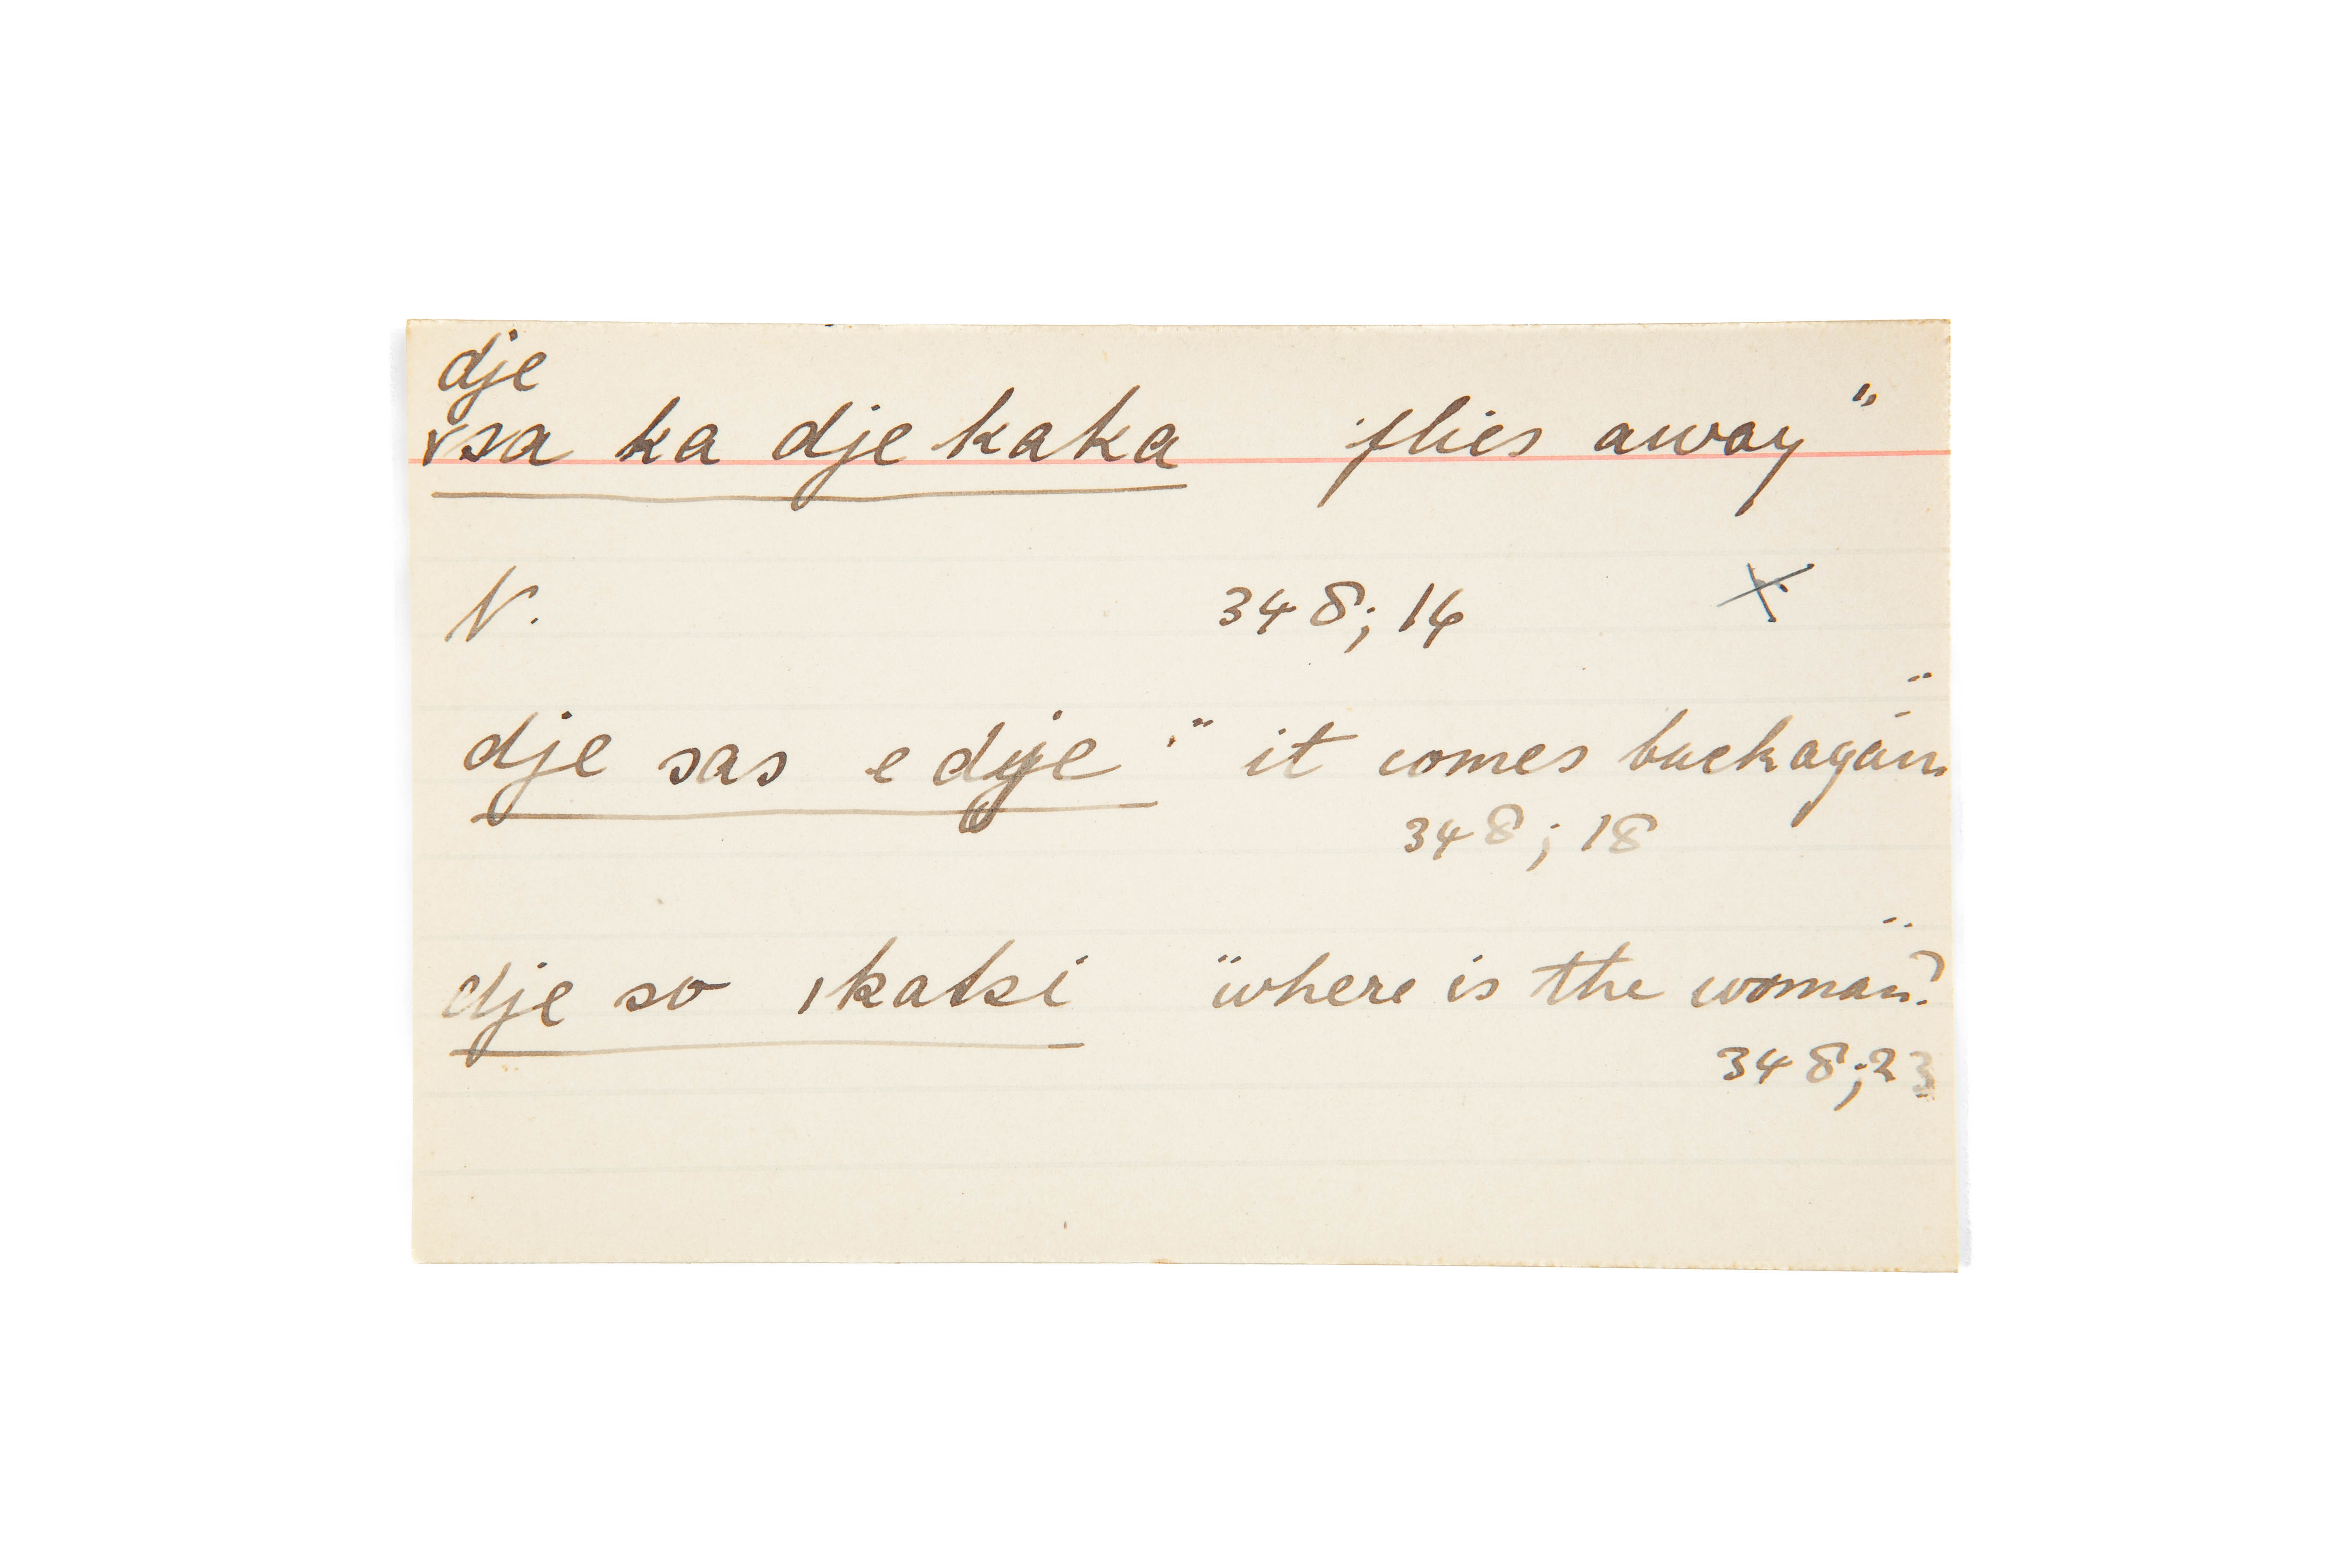 dje
sa ka dje kaka "flies away"
N. 348; 16 X
dje sas e dje "it comes back again"
348; 18
dje so ıkatsi "where is the woman?"
348; 23